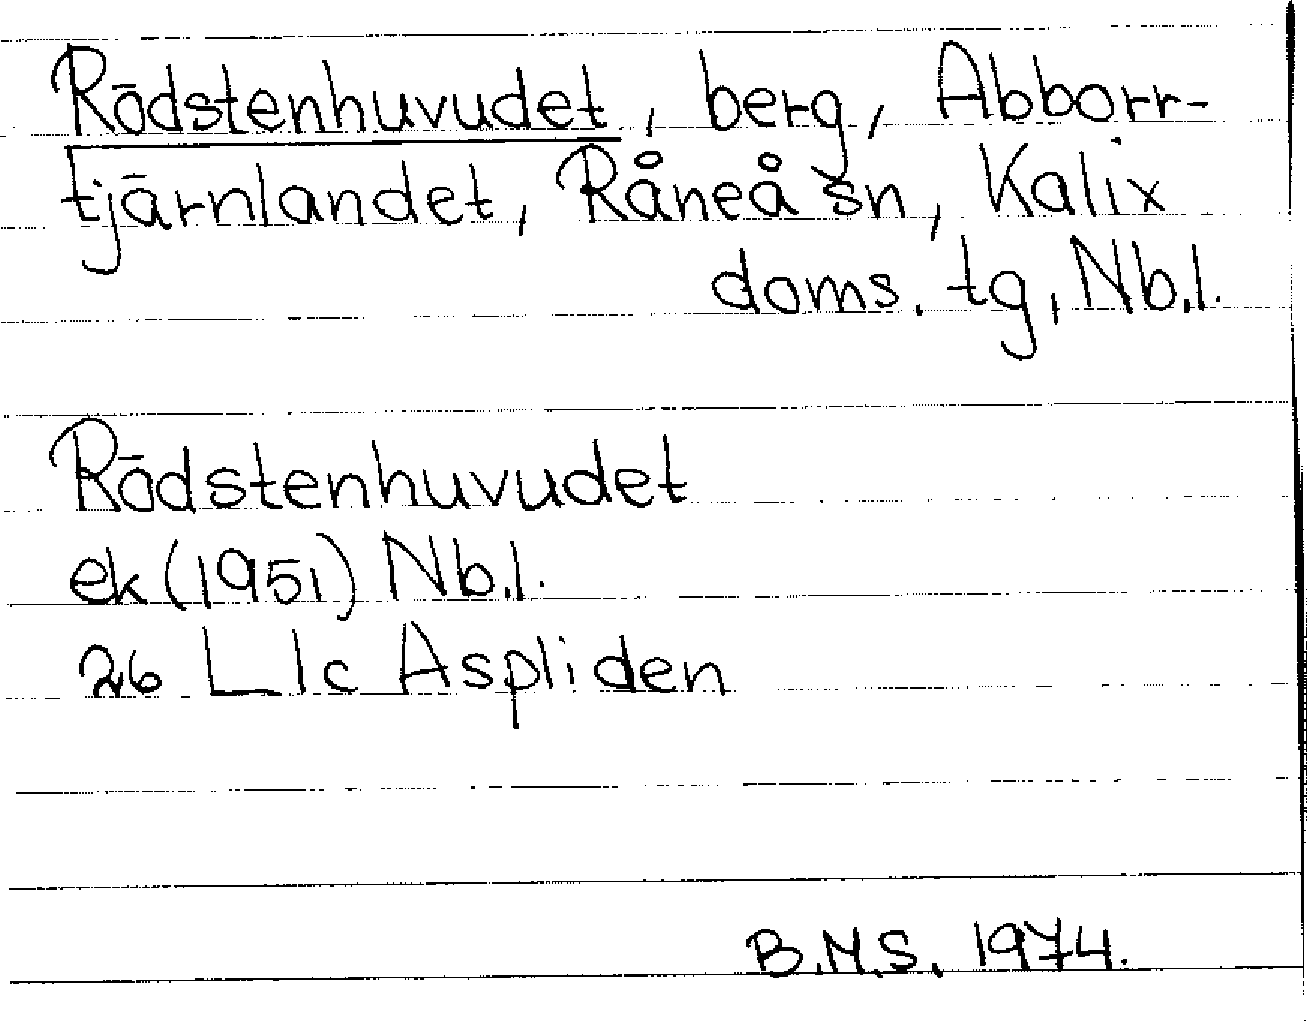 Rödstenhuvudet, berg, Abborr-
tjärnlandet, Råneå sn, Kalix
doms. tg, Nb.l.
Rödstenhuvudet
ek (1951) Nb.l.
26 L 1c Aspliden
B.N.S. 1974.